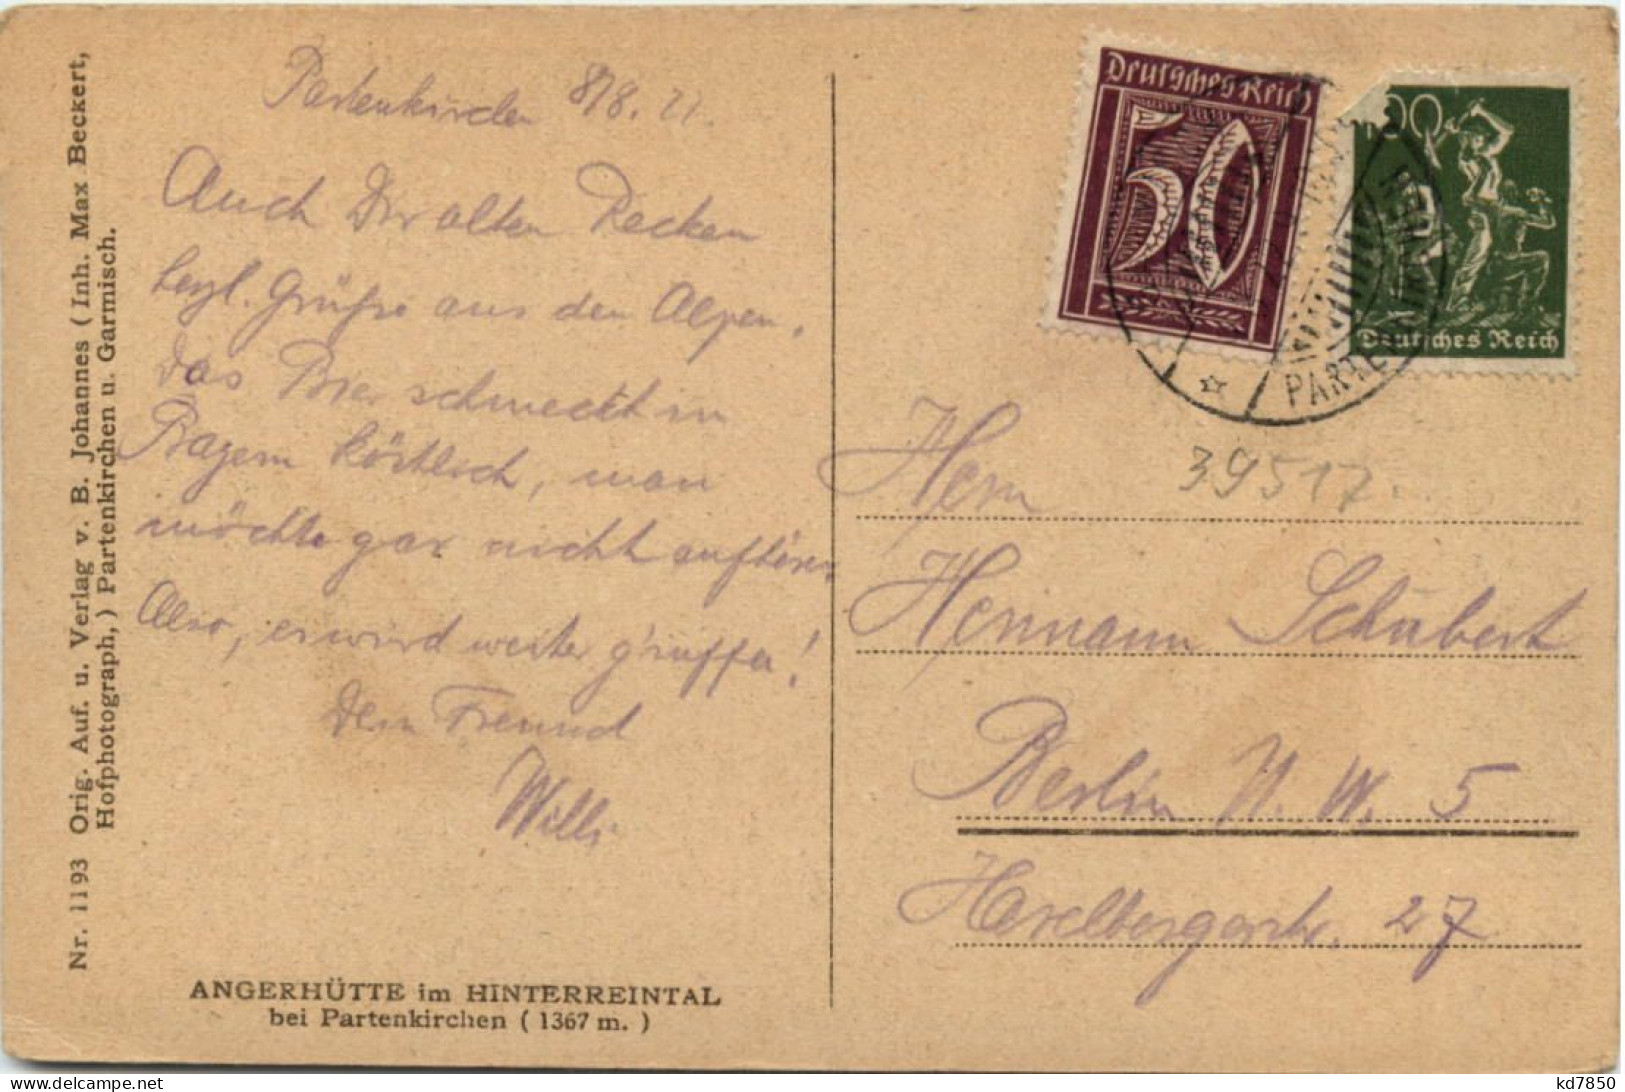 Nr. 1193 Orig. Auf. u. Verlag v. B. Johannes ( Inh. Max Beckert,
Hofphotograph,) Partenkirchen u. Garmisch.
Partenkirchen 8/8. 22.
Auch Dir alten Recken
herzl. Grüße aus den Alpen.
Das Bier schmeckt in
Bayern köstlich, man
möchte gar nicht aufhören
Also, es wird weiter g'suffa!
Dein Freund
Willi
ANGERHÜTTE im HINTERREINTAL
bei Partenkirchen ( 1367 m. )
Deutsches Reich
50
100
Deutsches Reich
PARTENKIRCHEN
39517.
Herrn
Hermann Schubert
Berlin N. W. 5
Havelbergerstr. 27
kd7850